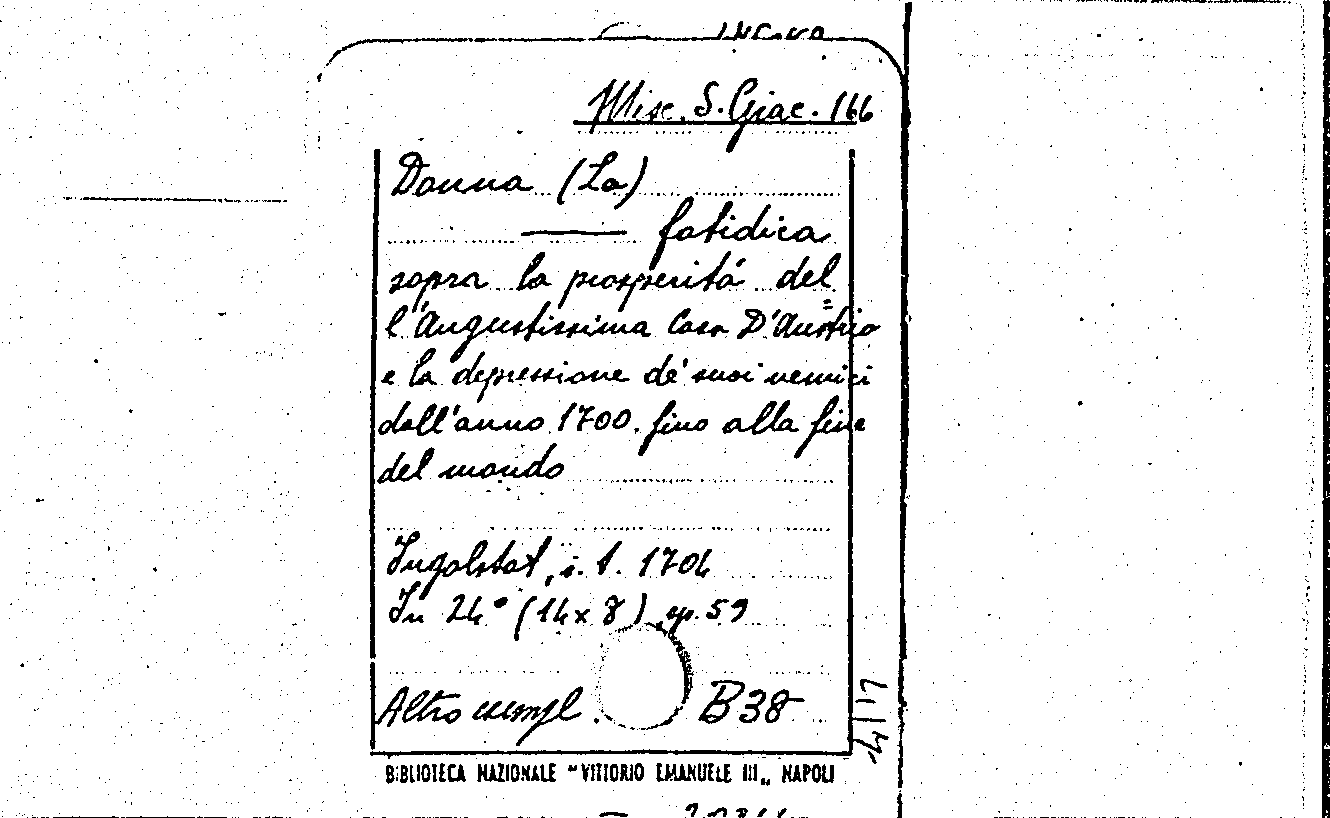 Misc. S. Giac. 166
Donna (La)
—— fatidica
sopra la prosperitá del=
l'Augustissima Casa D'Austria
e la depressione de' suoi nemici
dall'anno 1700. fino alla fine
del mondo
Ingolstat, s. t. 1704
In 24° (14 x 8), pp. 59
Altro esempl. B 38
BIBLIOTECA NAZIONALE "VITTORIO EMANUELE III„ NAPOLI